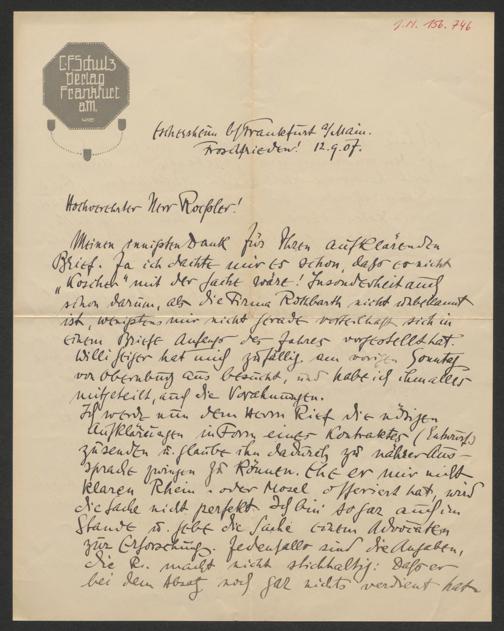 J.N. 156.746
C.F. Schulz
Verlag
Frankfurt
a.M.
Eschersheim b/Frankfurt a/Main.
Froschfrieden! 12.9.07.
Hochverehrter Herr Roeßler!
Meinen innigsten Dank für Ihren aufklärenden
Brief. Ja ich dachte mir es schon, dass es nicht
„Koscher" mit der Sache wäre! Insonderheit auch
schon darum, als die Firma Rothbarth nicht unbekannt
ist, wenigstens mir nicht gerade vorteilhaft sich in
einem Briefe Anfangs des Jahres vorgestellt hat.
Willi Geiger hat mich zufällig am vorigen Sonntag
von Obernburg aus besucht, und habe ich ihm alles
mitgeteilt, auch die Vorahnungen.
Ich werde nun dem Herrn Rief die nötigen
Aufklärungen in Form eines Kontraktes (Entwurf)
zusenden u. glaube ihn dadurch zu näherer Aus-
sprache zwingen zu können. Ehe er mir nicht
klaren Rhein- oder Mosel offeriert hat, wird
die Sache nicht perfekt. Ich bin sogar auch im
Stande u. gebe die Sache einem Advokaten
zur Erforschung. Jedenfalls sind die Angaben,
die R. macht nicht stichhaltig: Dass er
bei dem Absatz noch gar nichts verdient hat